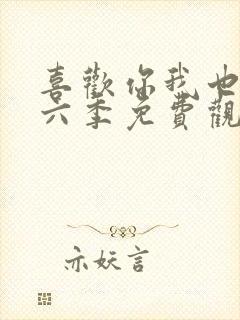 喜歡你我也
六季免費觀
亦妖言